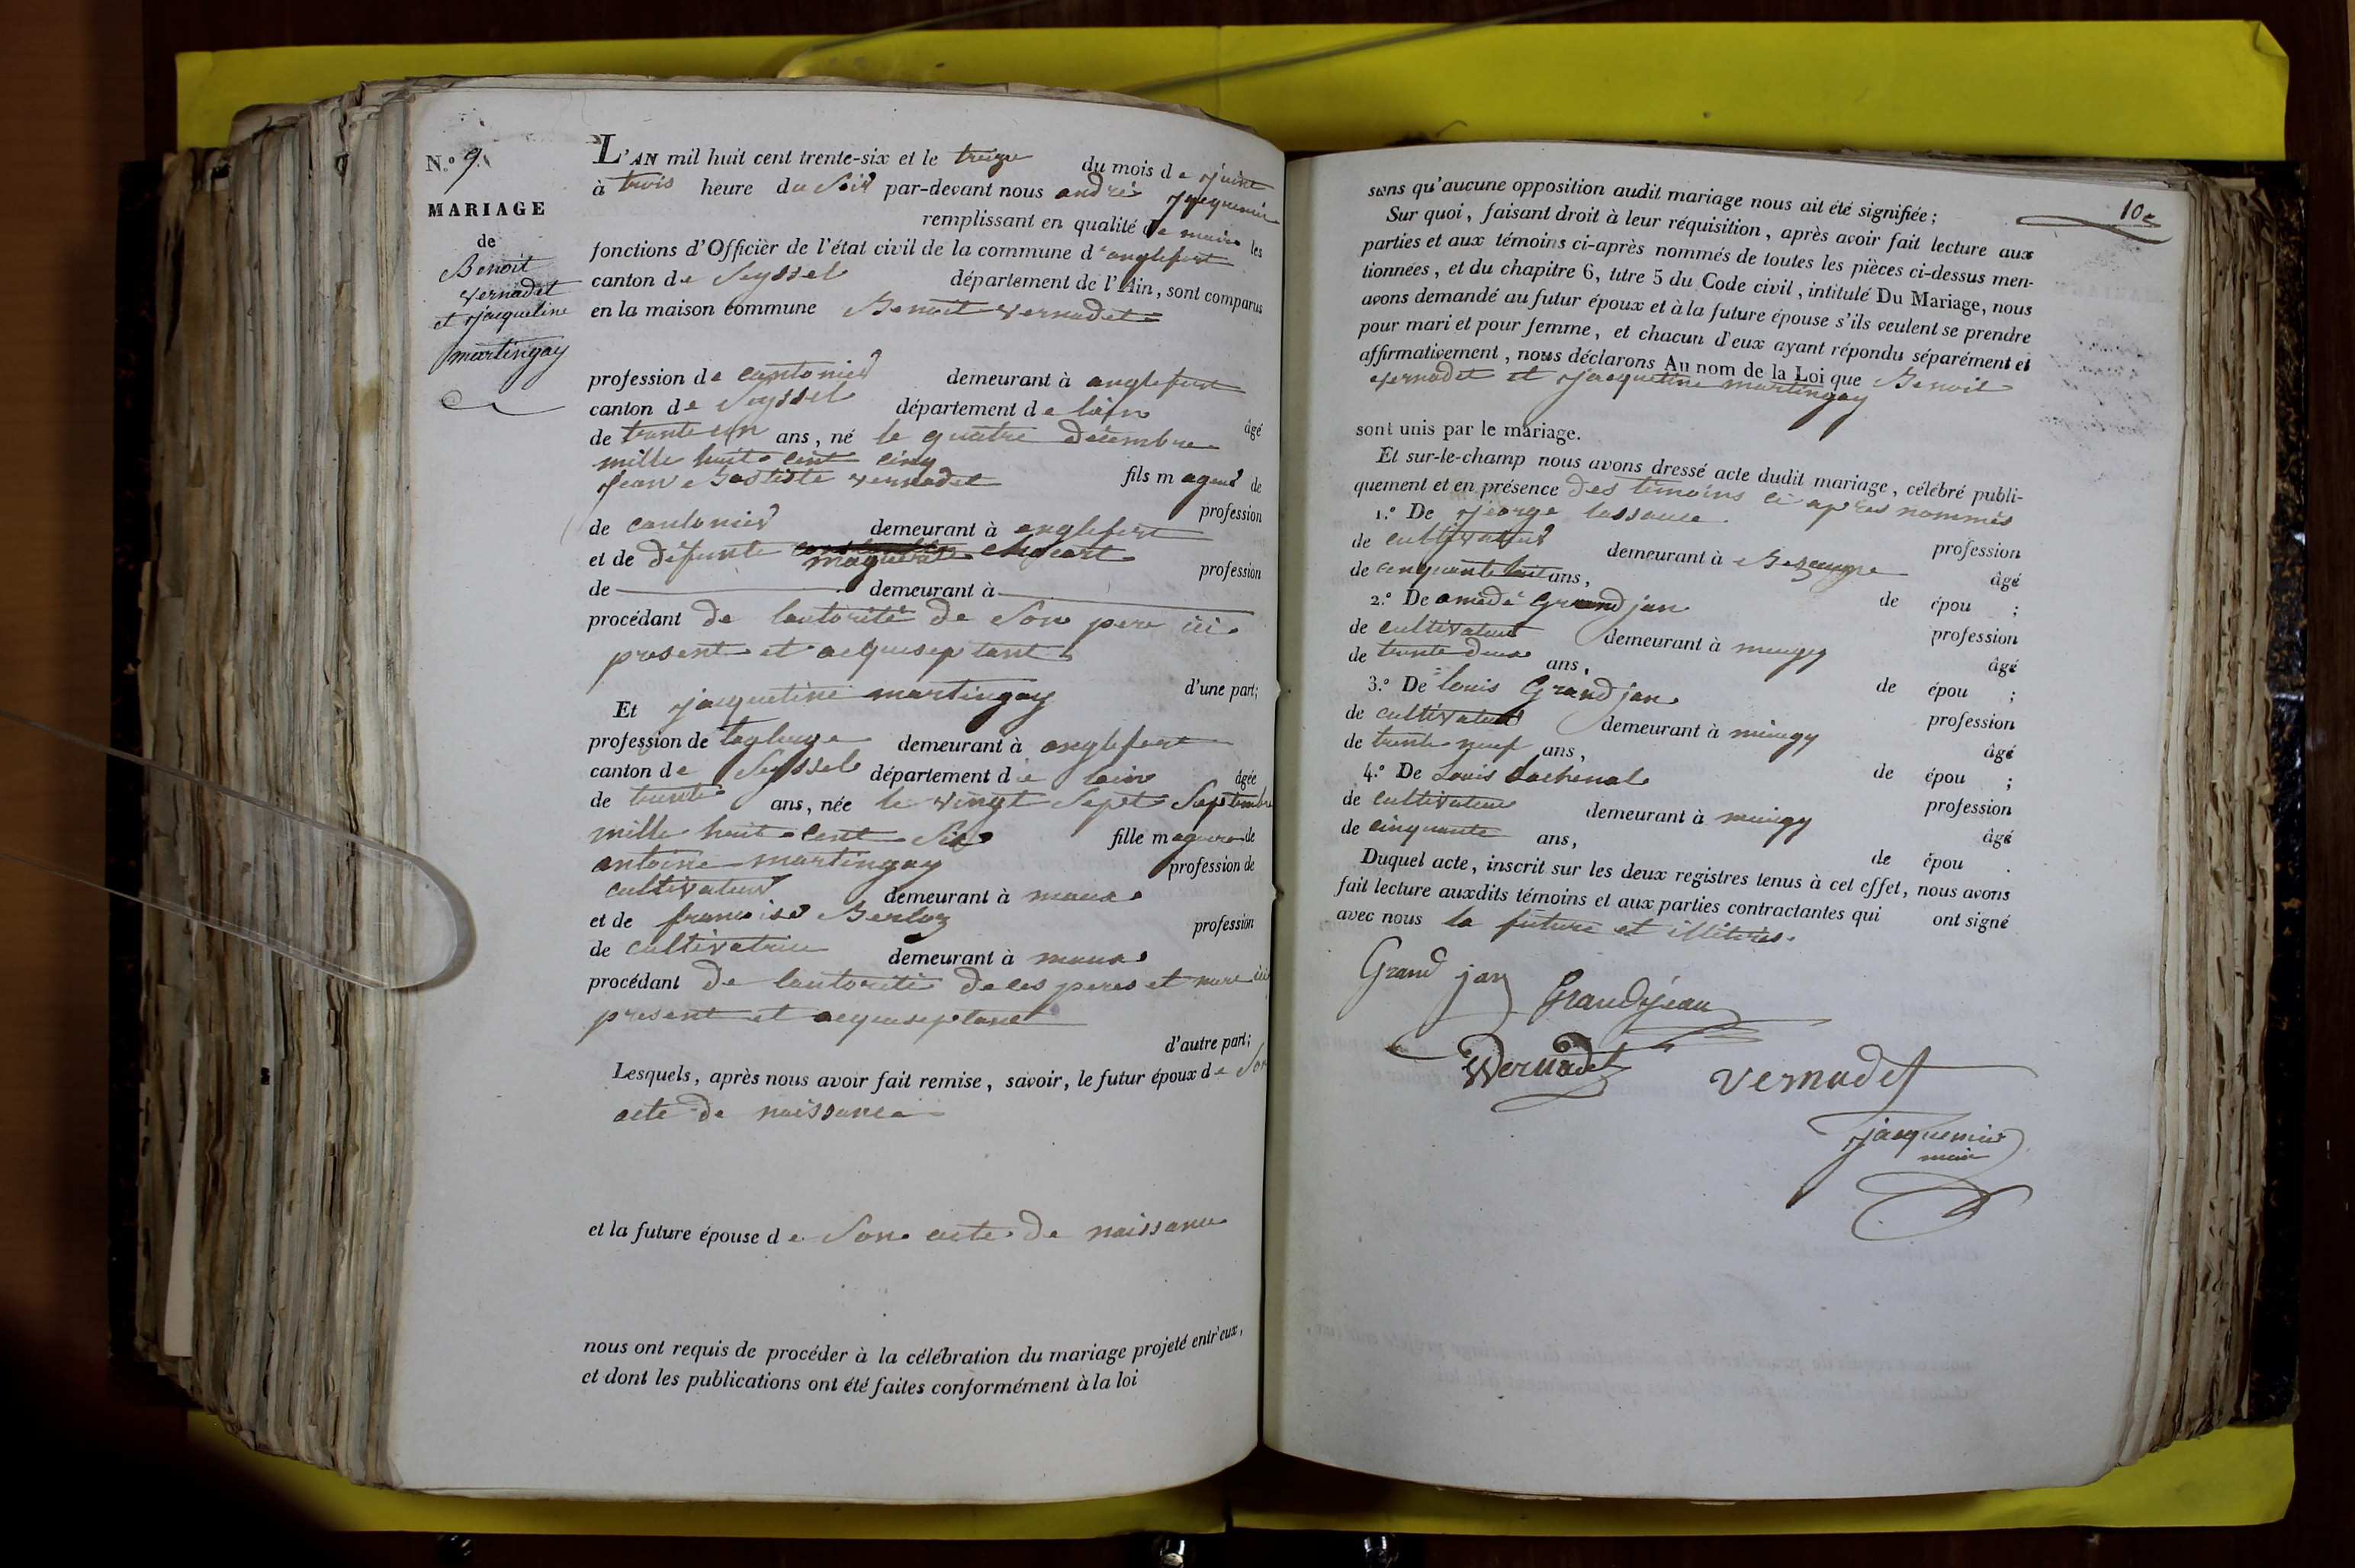 N.º 9.
MARIAGE
de
Benoit
vernadet
et jacqueline
martingay
L'AN mil huit cent trente-six et le treize du mois de juine
à trois heure du soir par-devant nous andré jacquemin
remplissant en qualité de maire les
fonctions d'Officier de l'état civil de la commune d'anglefort
canton de Seyssel département de l'Ain, sont comparus
en la maison commune Benoit vernadet
profession de cantonier demeurant à anglefort
canton de Seyssel département de lain âgé
de trente un ans, né le quatre décembre
mille huit cent cinq fils mageur de
jean Bastiste vernadet profession
de cantonier demeurant à anglefort
et de défunte profession
de demeurant à
procédant de lautorité de son pere ici
present et acquiseptant
d'une part;
Et jacqueline martingay
profession de demeurant à anglefort
canton de Seyssel département de lain âgée
de trente ans, née le vingt sept septembre
mille huit cent six fille mageure de
antoine martingay profession de
cultivateur demeurant à
et de francoise Berlioz profession
de cultivatrice demeurant à
procédant de lautorité de ces peres et mere ici
present et acquiseptant
d'autre part;
Lesquels, après nous avoir fait remise, savoir, le futur époux de son
acte de naissance
et la future épouse de son acte de naissance
nous ont requis de procéder à la célébration du mariage projeté entr'eux,
et dont les publications ont été faites conformément à la loi
10
sans qu'aucune opposition audit mariage nous ait été signifiée;
Sur quoi, faisant droit à leur réquisition, après avoir fait lecture aux
parties et aux témoins ci-après nommés de toutes les pièces ci-dessus men-
tionnées, et du chapitre 6, titre 5 du Code civil, intitulé Du Mariage, nous
avons demandé au futur époux et à la future épouse s'ils veulent se prendre
pour mari et pour femme, et chacun d'eux ayant répondu séparément et
affirmativement, nous déclarons Au nom de la Loi que Benoit
vernadet et jacqueline martingay
sont unis par le mariage.
Et sur-le-champ nous avons dressé acte dudit mariage, célébré publi-
quement et en présence des témoins ci après nommés
1.º De jeorge lassauce profession
de cultivateur demeurant à âgé
de cinquante huit ans, de épou ;
2.º De amedé Grandjan profession
de cultivateur demeurant à âgé
de trente deux ans, de épou ;
3.º De louis Grandjan profession
de cultivateur demeurant à âgé
de trente neuf ans, de épou ;
4.º De Louis Lachenal profession
de cultivateur demeurant à âgé
de cinquante ans, de épou .
Duquel acte, inscrit sur les deux registres tenus à cet effet, nous avons
fait lecture auxdits témoins et aux parties contractantes qui ont signé
avec nous la future et illétéres.
Grand jan
Grandjean
Vernadet
vernadet
jacquemin
maire